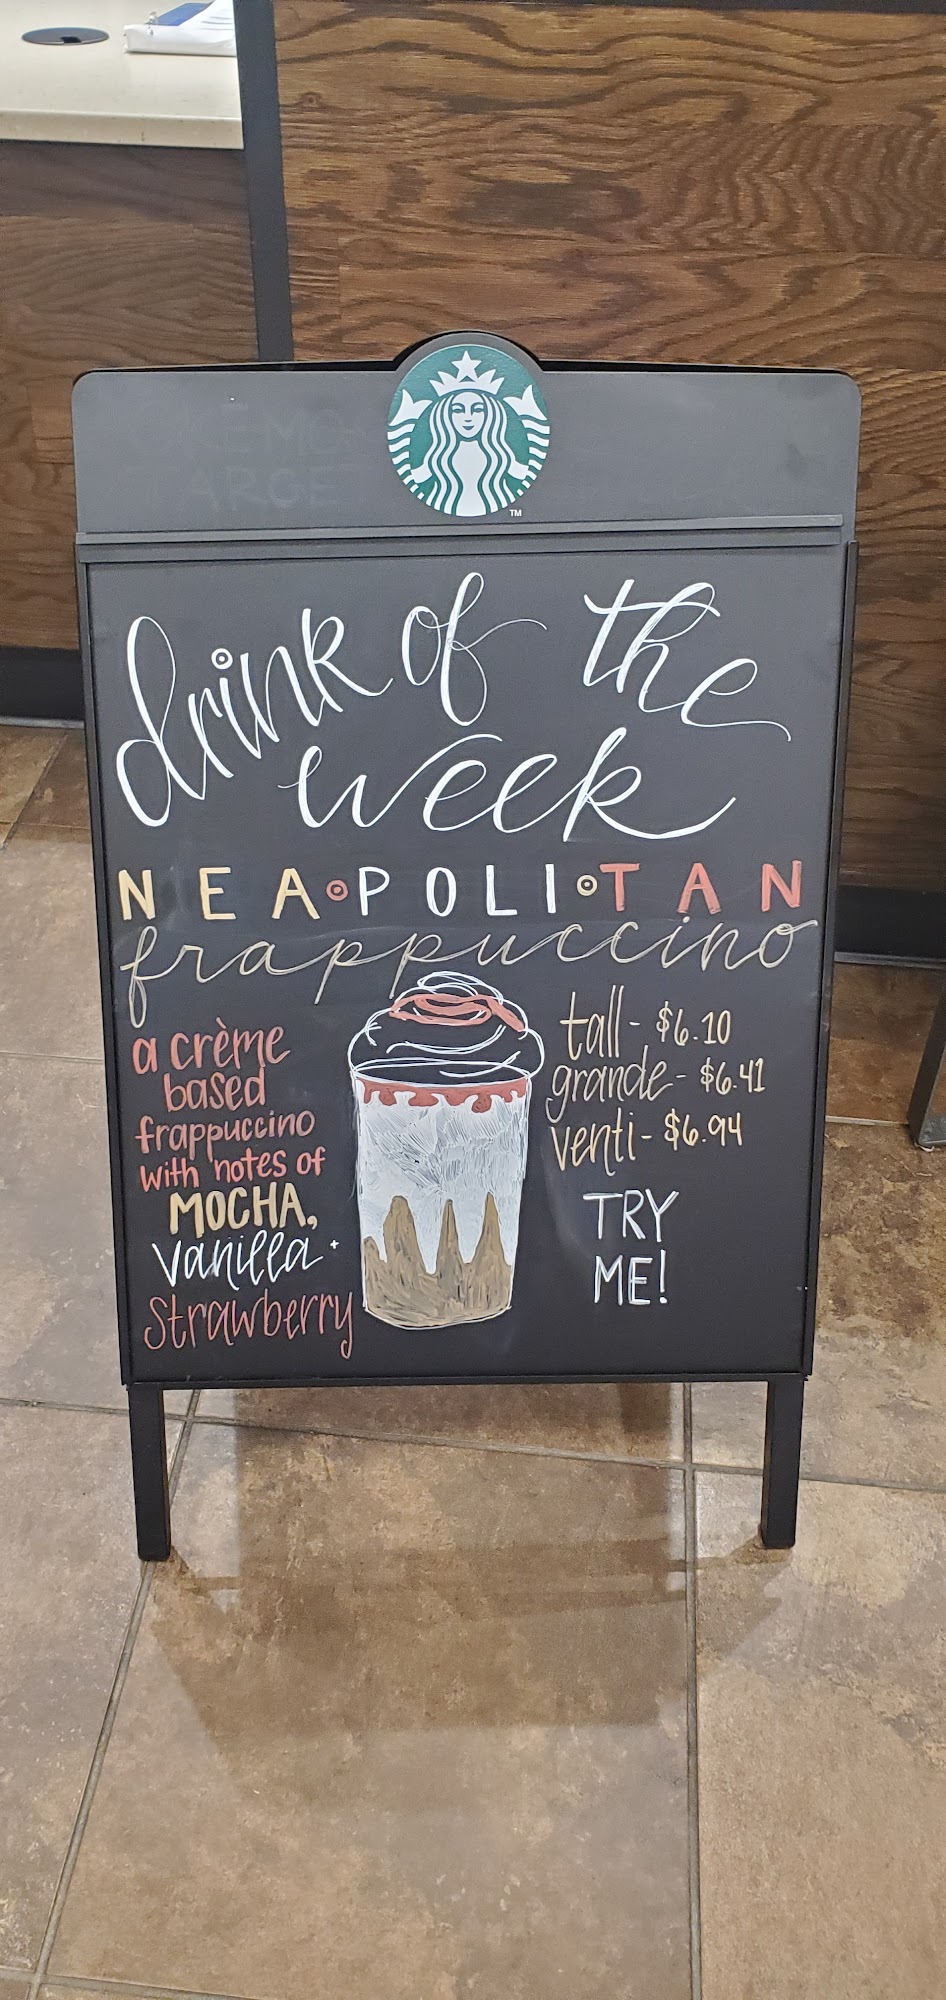 TM
drink of the
week
NEAPOLITAN
frappuccino
a crème
based
frappuccino
with notes of
MOCHA,
vanilla +
Strawberry
tall - $6.10
grande - $6.41
venti - $6.94
TRY
ME!